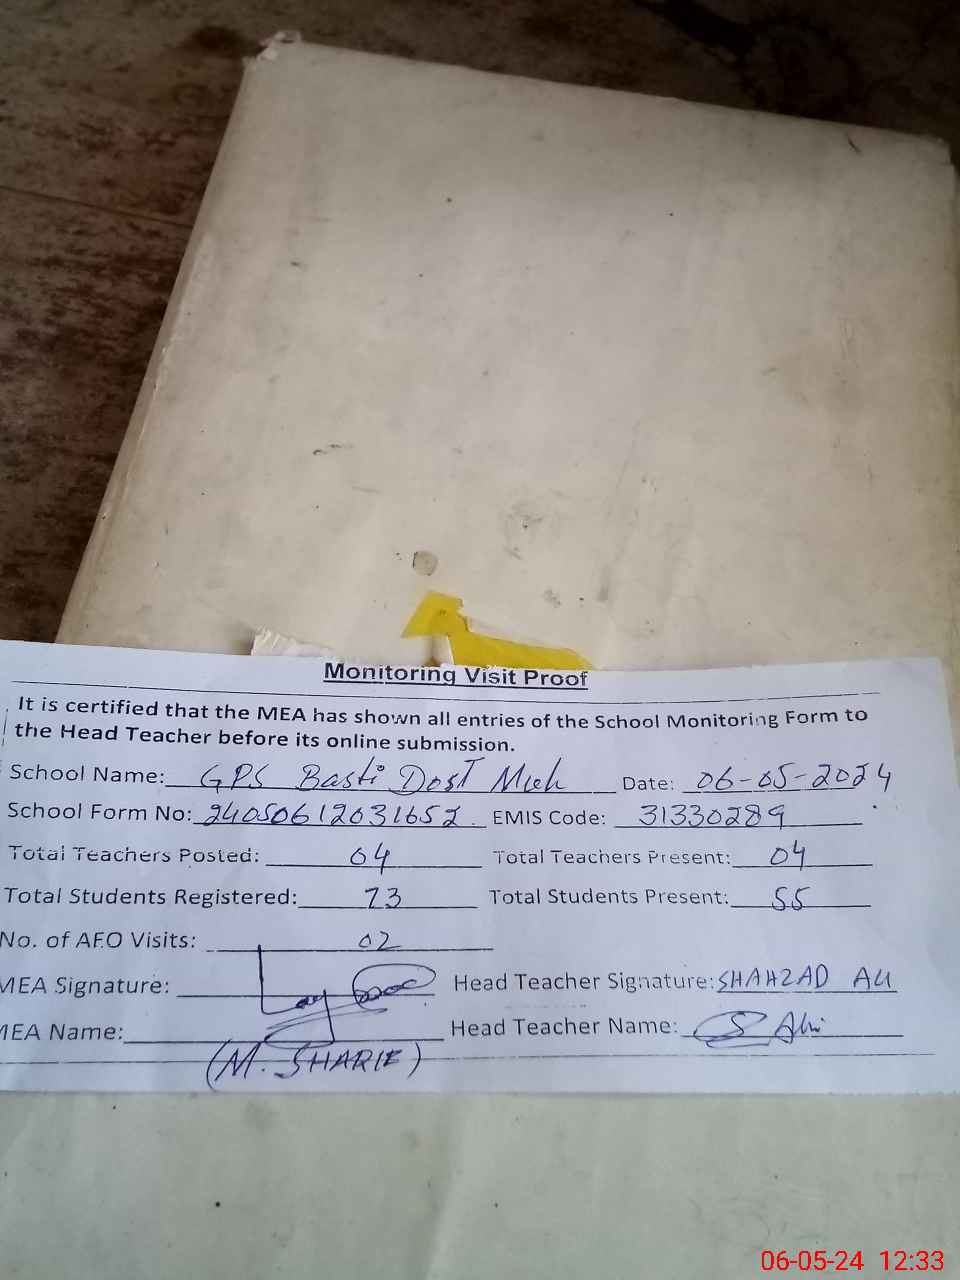 Monitoring Visit Proof
It is certified that the MEA has shown all entries of the School Monitoring Form to
the Head Teacher before its online submission.
School Name: GPS Basti Dost Muh Date: 06-05-2024
School Form No: 24050612031652 EMIS Code: 31330289
Total Teachers Posted: 04 Total Teachers Present: 04
Total Students Registered: 73 Total Students Present: 55
No. of AEO Visits: 02
MEA Signature: Head Teacher Signature: SHAHZAD ALI
MEA Name: Head Teacher Name: S Ali
(M. SHARIF)
06-05-24 12:33